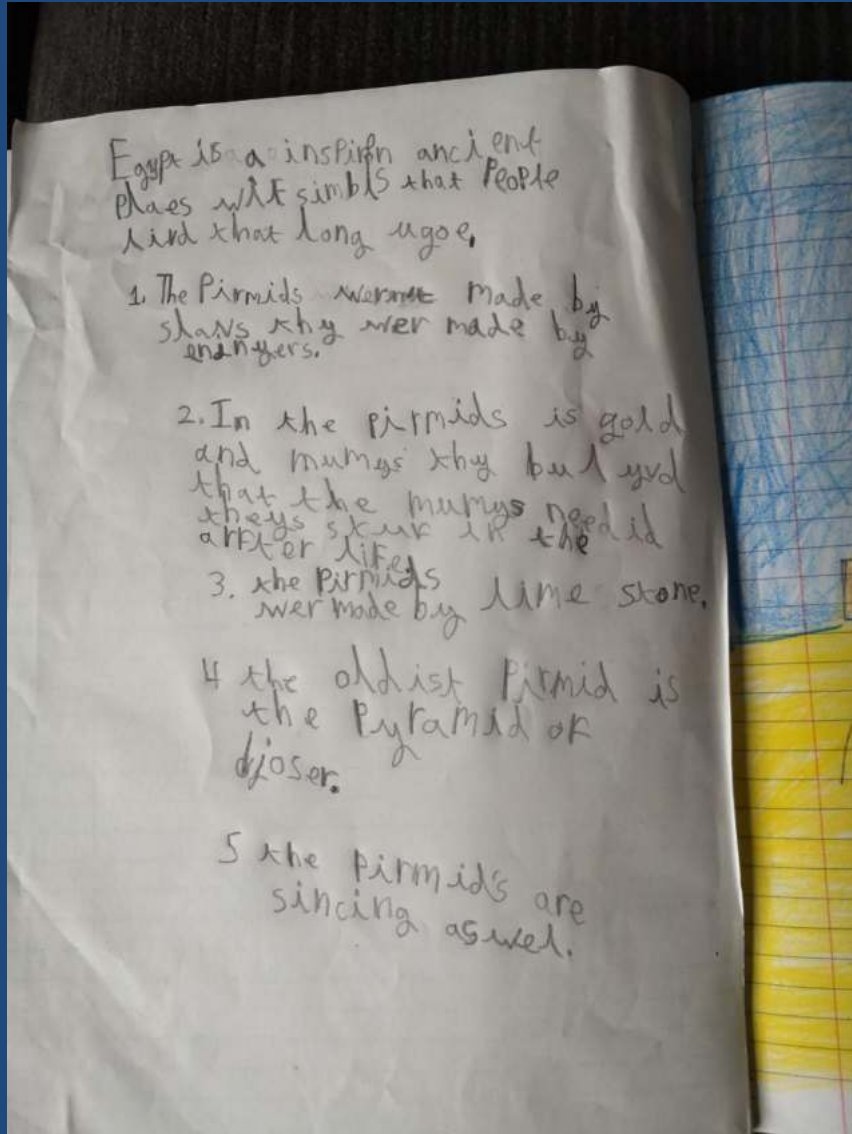 Egypt is a inspirin ancient
plaes wit simbls that People
livd that long ugoe.
1. The Pirmids wernt made by
slavs thy wer made by
eninyers.
2. In the pirmids is gold
and mumys thy bulyvd
that the mumys need id
theys stuf in the
arfter life.
3. the Pirmids
wer made by lime stone.
4 the oldist Pirmid is
the Pyramid of
djoser.
5 the pirmids are
sincing aswel.